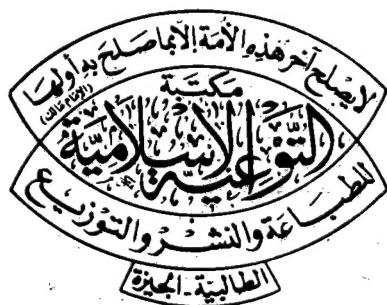 لا يصلح آخر هذه الأمة إلا بما صلح به أولها
(الإمام مالك)
مكتبة
التوعية الإسلامية
للطباعة والنشر والتوزيع
الطالبية - الجيزة